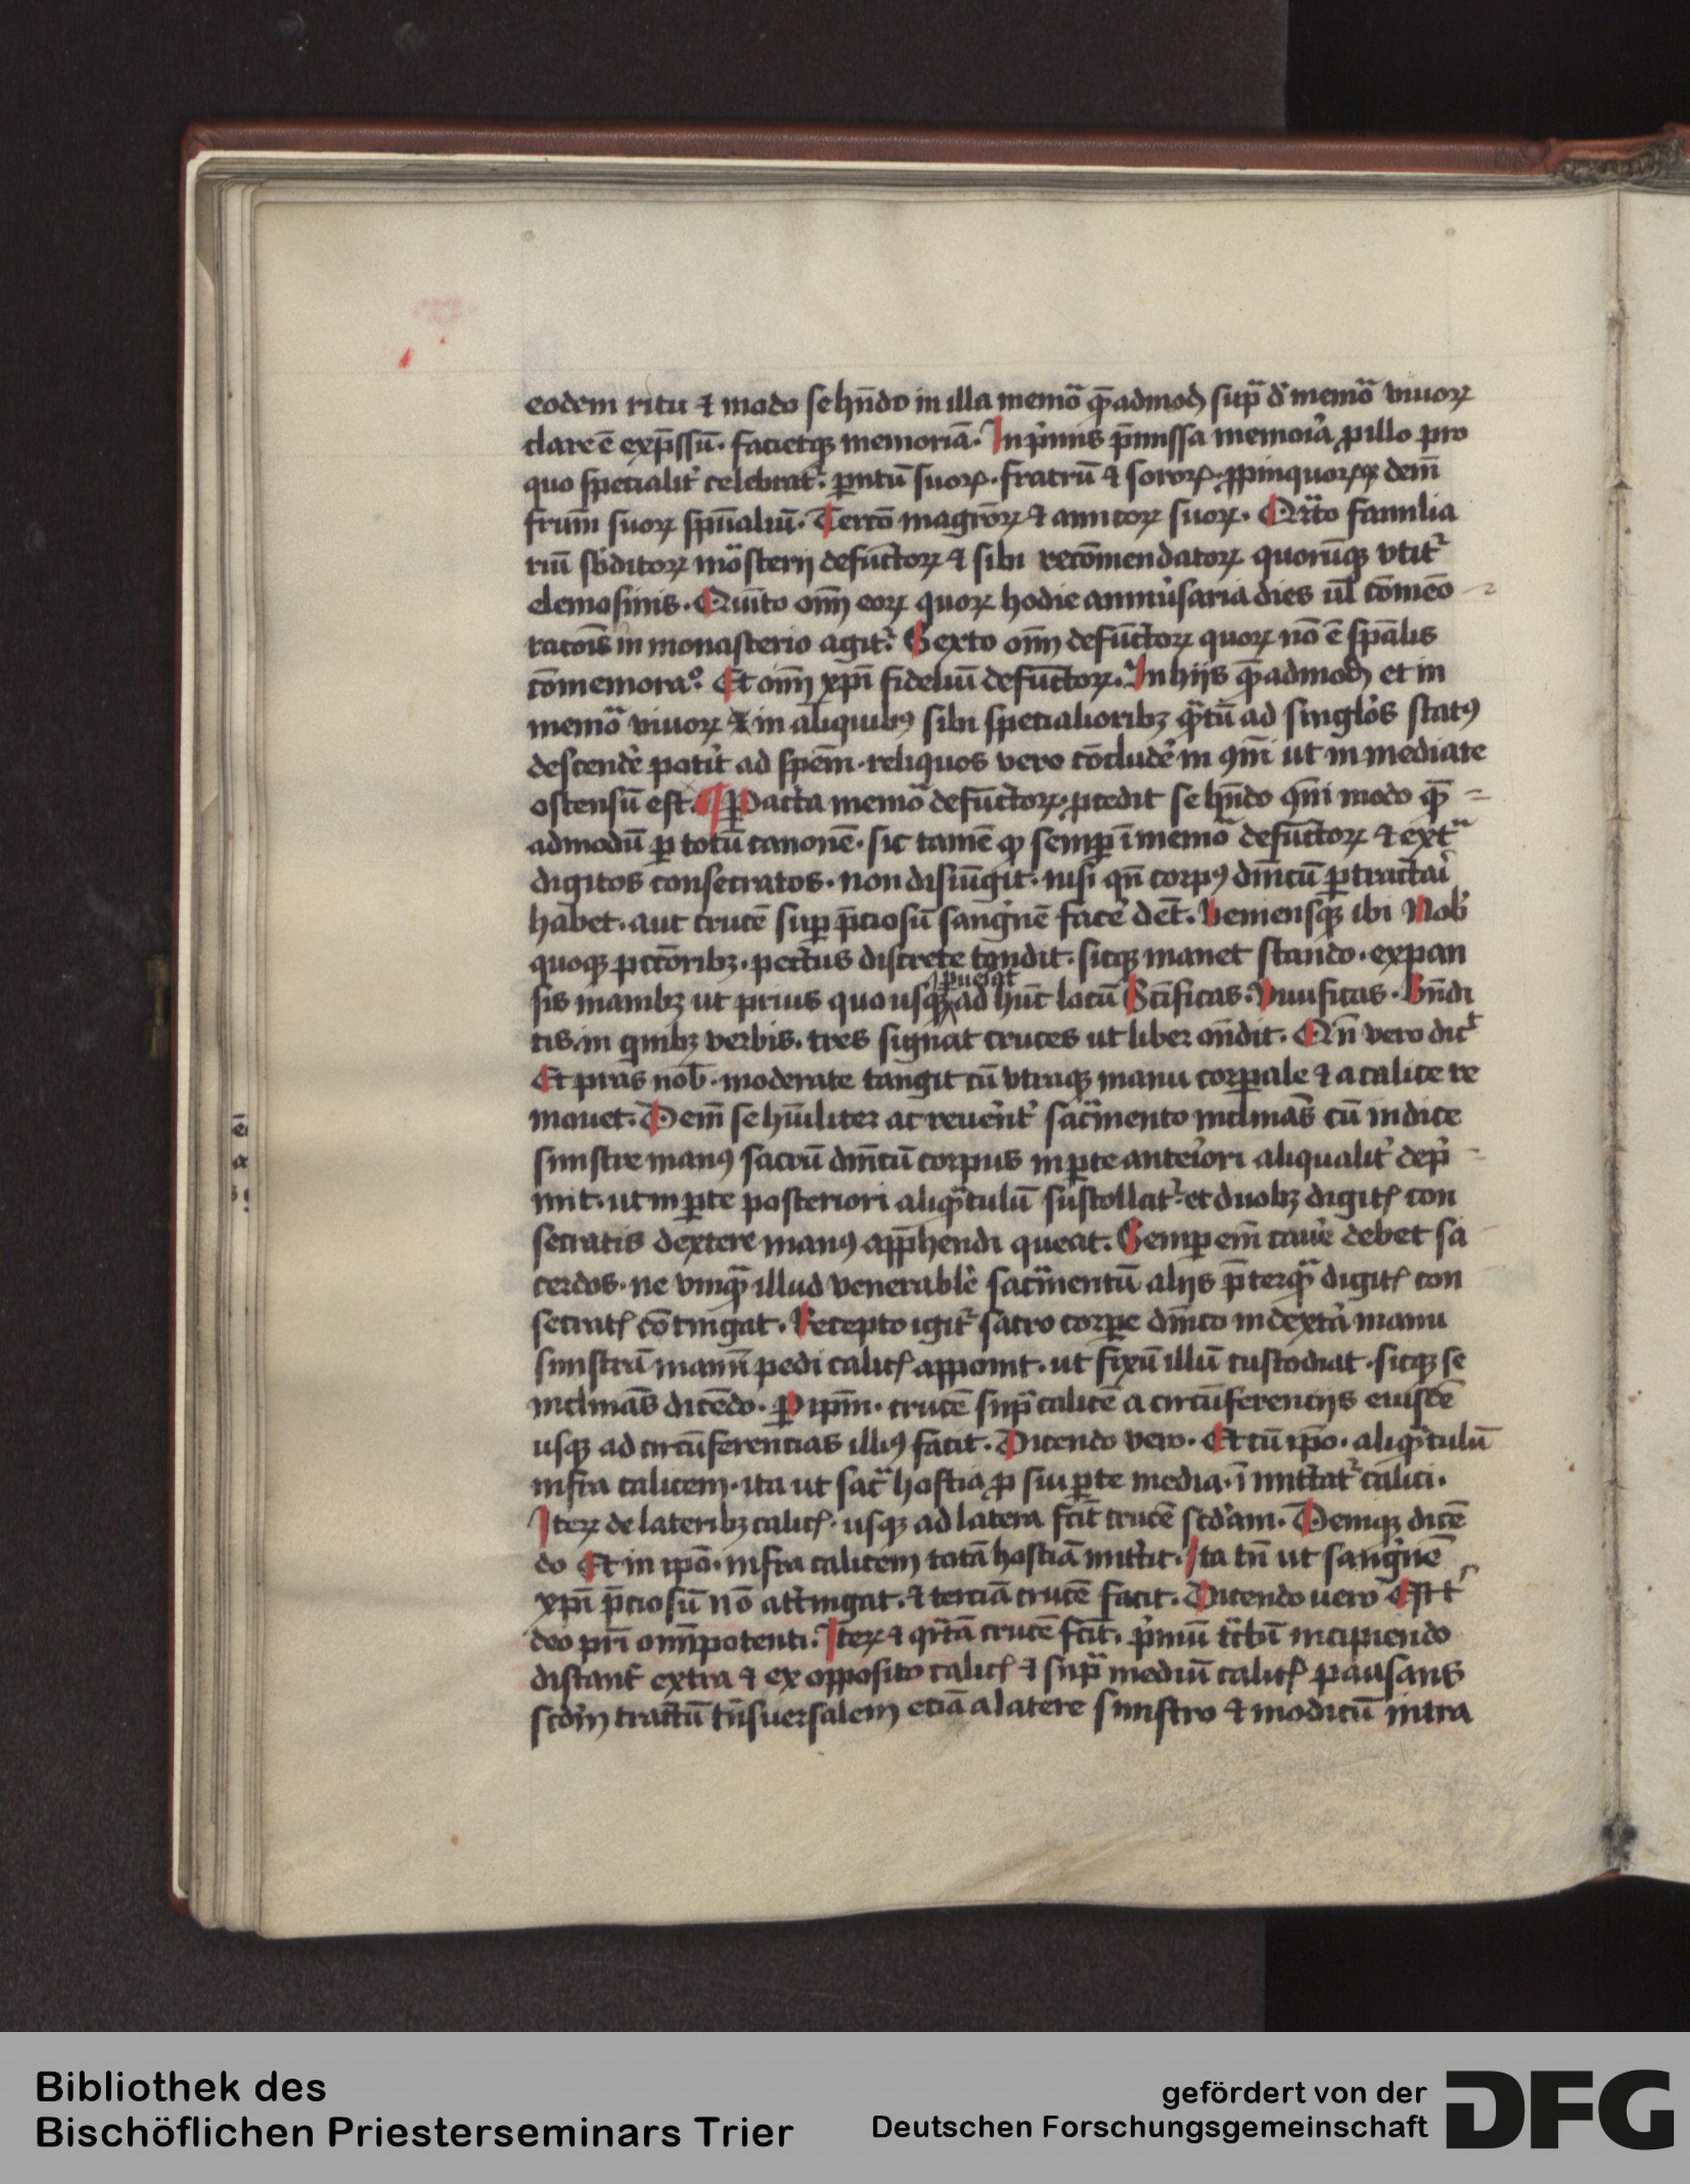 eodem ritu ⁊ modo se hn̄do in illa memōa q̄admoꝺ sup̄a d' memōa viuoꝝ
clare ē exp̄ssū. facietqꝫ memoriā. In p'mis p̄missa memoīa ꝓ illo pro
quo specialit' celebrat᷑. pntū suoꝝ. fratrū ⁊ soroꝝ. ꝓpinquoꝝqꝫ dem̄
frum̄ suoꝝ spūaliū. Tercō magrōꝝ ⁊ amicoꝝ suoꝝ. Qrᵃto familia
riū sb'ditoꝝ mōsterij defūctoꝝ ⁊ sibi recōmendatoꝝ quorūqꝫ vtit᷑
elemosinis. Quīto om̄ eoꝝ quoꝝ hodie anniu'saria dies ul' cōmeō
racōis in monasterio agit᷑. Sexto om̄ defūctoꝝ quoꝝ nō ē spālis
cōmemoraᵒ. Et om̄ xp̄i fideliū defūctoꝝ. In hijs q̄admoꝺ et in
memōa viuoꝝ ⁊ in aliquibꝰ sibi specialioribꝫ qᵃtū ad singlōs statꝰ
descendē' potit' ad spēm. reliquos vero cōcludē' in ꝯm̄i ut in mediate
ostensū est. ¶ Pacta memōa defūctoꝝ. ꝓcedit se hn̄do ꝯm̄i modo q̄
admodū ꝑ totū canonē. sic tamē ꝙ semꝑ ī memōa defūctoꝝ ⁊ extᵃ
digitos consecratos. non disiūgit. nisi qn̄ corpꝰ dn̄icū ꝑtractai'
habet. aut crucē suꝑ p̄ciosū sang'nē facē' det̄. Veniensqꝫ ibi Nob'
quoqꝫ pctōribꝫ. pectus discrete tundit. sicqꝫ manet stando. expan
sis manibꝫ ut prius quousqꝫ ꝑueniat ad hūc locū Sc̄ificas. Viuificas. Bn̄di
cis. in quibꝫ verbis. tres signat cruces ut liber on̄dit. Qn̄ vero dic̄t
Et p̄stas nob̄. moderate tangit cū vtraqꝫ manu corꝑale ⁊ a calice re
mouet. Dem̄ se hūiliter ac reuēnt' sacᵃmento inclinās cū indice
sinistre manꝰ sacrū dn̄icū corpus in ꝑte anteiori aliqualit' dep'
mit. ut in ꝑte posteriori aliqᵃtulū sustollat᷑. et duobꝫ digitꝭ con
secratis dextere manꝰ app̄hendi queat. Semꝑ em̄ cauē' debet sa
cerdos. ne vnqᵃ illud venerabile sacᵃmentū alijs p̄terqᵃ digitꝭ con
secratꝭ cōtingat. Recepto igit᷑ sacro corꝑe dn̄ico in dext'a manu
sinistrā manū pedi calicꝭ apponit. ut fixū illū custodiat. sicqꝫ se
inclinās dicēdo. P ip̄m. crucē supᵃ calicē a circūferencijs eiusdē
usqꝫ ad circūferencias illiꝰ facit. Dicendo vero. Et cū ip̄o. aliqᵃtulū
infra calicem. ita ut sacᵃ hostia ꝓ sui ꝑte media. ī mittat᷑ calici.
Iteꝝ de lateribꝫ calicꝭ. usqꝫ ad latera fcit̄ crucē scd'am. Demqꝫ dicē
do Et in ip̄o. infra calicem totā hostiā mittit. Ita tn̄ ut sang'nē
xp̄i p̄ciosū nō attingat. ⁊ terciā crucē facit. Dicendo uero Est t'
deo pri' omp̄potenti. Iteꝝ ⁊ qrᵃtā crucē fcit̄. p'mū tc̄tū incipiendo
distant' extra ⁊ ex opposito calicꝭ ⁊ supᵃ mediū calicꝭ pausans
scdm̄ tractū tn̄suersalem eciā a latere sinistro ⁊ modicū intra
Bibliothek des
Bischöflichen Priesterseminars Trier
gefördert von der
Deutschen Forschungsgemeinschaft
DFG